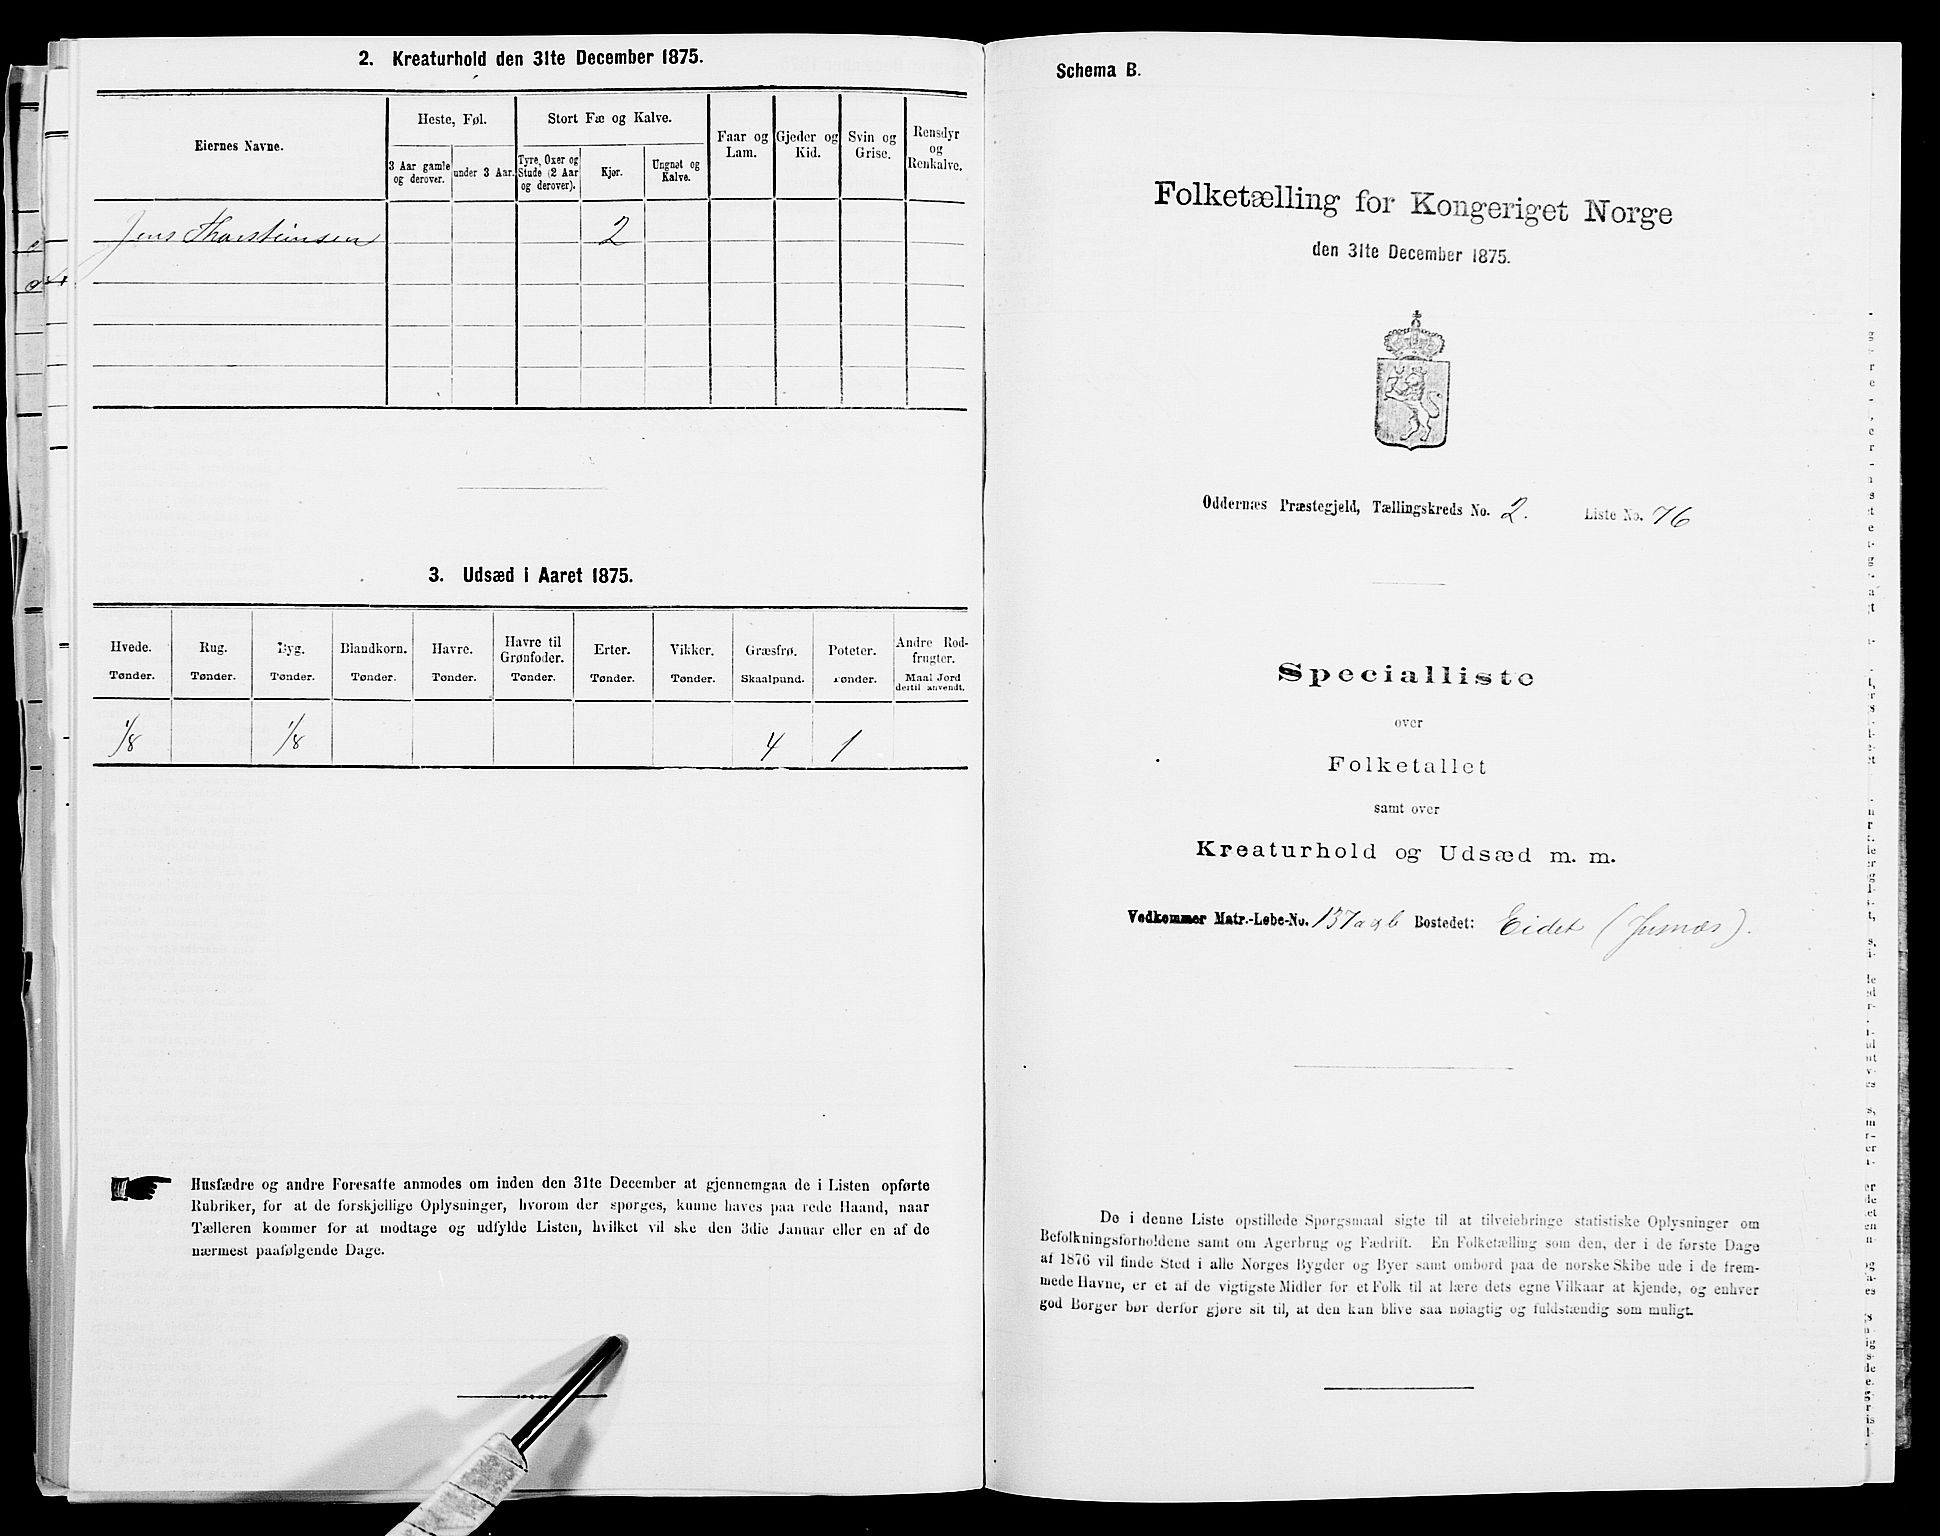 2. Kreaturhold den 31te December 1875.
Eiernes Navne.
Heste, Føl.
3 Aar gamle og derover.
under 3 Aar.
Stort Fæ og Kalve.
Tyre, Oxer og Stude (2 Aar og derover).
Kjør.
Ungnøt og Kalve.
Faar og Lam.
Gjeder og Kid.
Svin og Grise.
Rensdyr og Renkalve.
Jens Thorsteinsen 2
3. Udsæd i Aaret 1875.
Hvede. Tønder.
Rug. Tønder.
Byg. Tønder.
Blandkorn. Tønder.
Havre. Tønder.
Havre til Grønfoder. Tønder.
Erter. Tønder.
Vikker. Tønder.
Græsfrø. Skaalpund.
Poteter. Tønder.
Andre Rodfrugter. Maal Jord dertil anvendt.
1/8 1/8 4 1
Husfædre og andre Foresatte anmodes om inden den 31te December at gjennemgaa de i Listen opførte
Rubriker, for at de forskjellige Oplysninger, hvorom der spørges, kunne haves paa rede Haand, naar
Tælleren kommer for at modtage og udfylde Listen, hvilket vil ske den 3die Januar eller en af de
nærmest paafølgende Dage.
Schema B.
Folketælling for Kongeriget Norge
den 31te December 1875.
Oddernæs Præstegjeld, Tællingskreds No. 2. Liste No. 76
Specialliste
over
Folketallet
samt over
Kreaturhold og Udsæd m. m.
Vedkommer Matr.-Løbe-No. 137 a og b Bostedet: Eidet (Justnæs).
De i denne Liste opstillede Spørgsmaal sigte til at tilveiebringe statistiske Oplysninger om
Befolkningsforholdene samt om Agerbrug og Fædrift. En Folketælling som den, der i de første Dage
af 1876 vil finde Sted i alle Norges Bygder og Byer samt ombord paa de norske Skibe ude i de frem-
mede Havne, er et af de vigtigste Midler for et Folk til at lære dets egne Vilkaar at kjende, og enhver
god Borger bør derfor gjøre sit til, at den kan blive saa nøiagtig og fuldstændig som muligt.